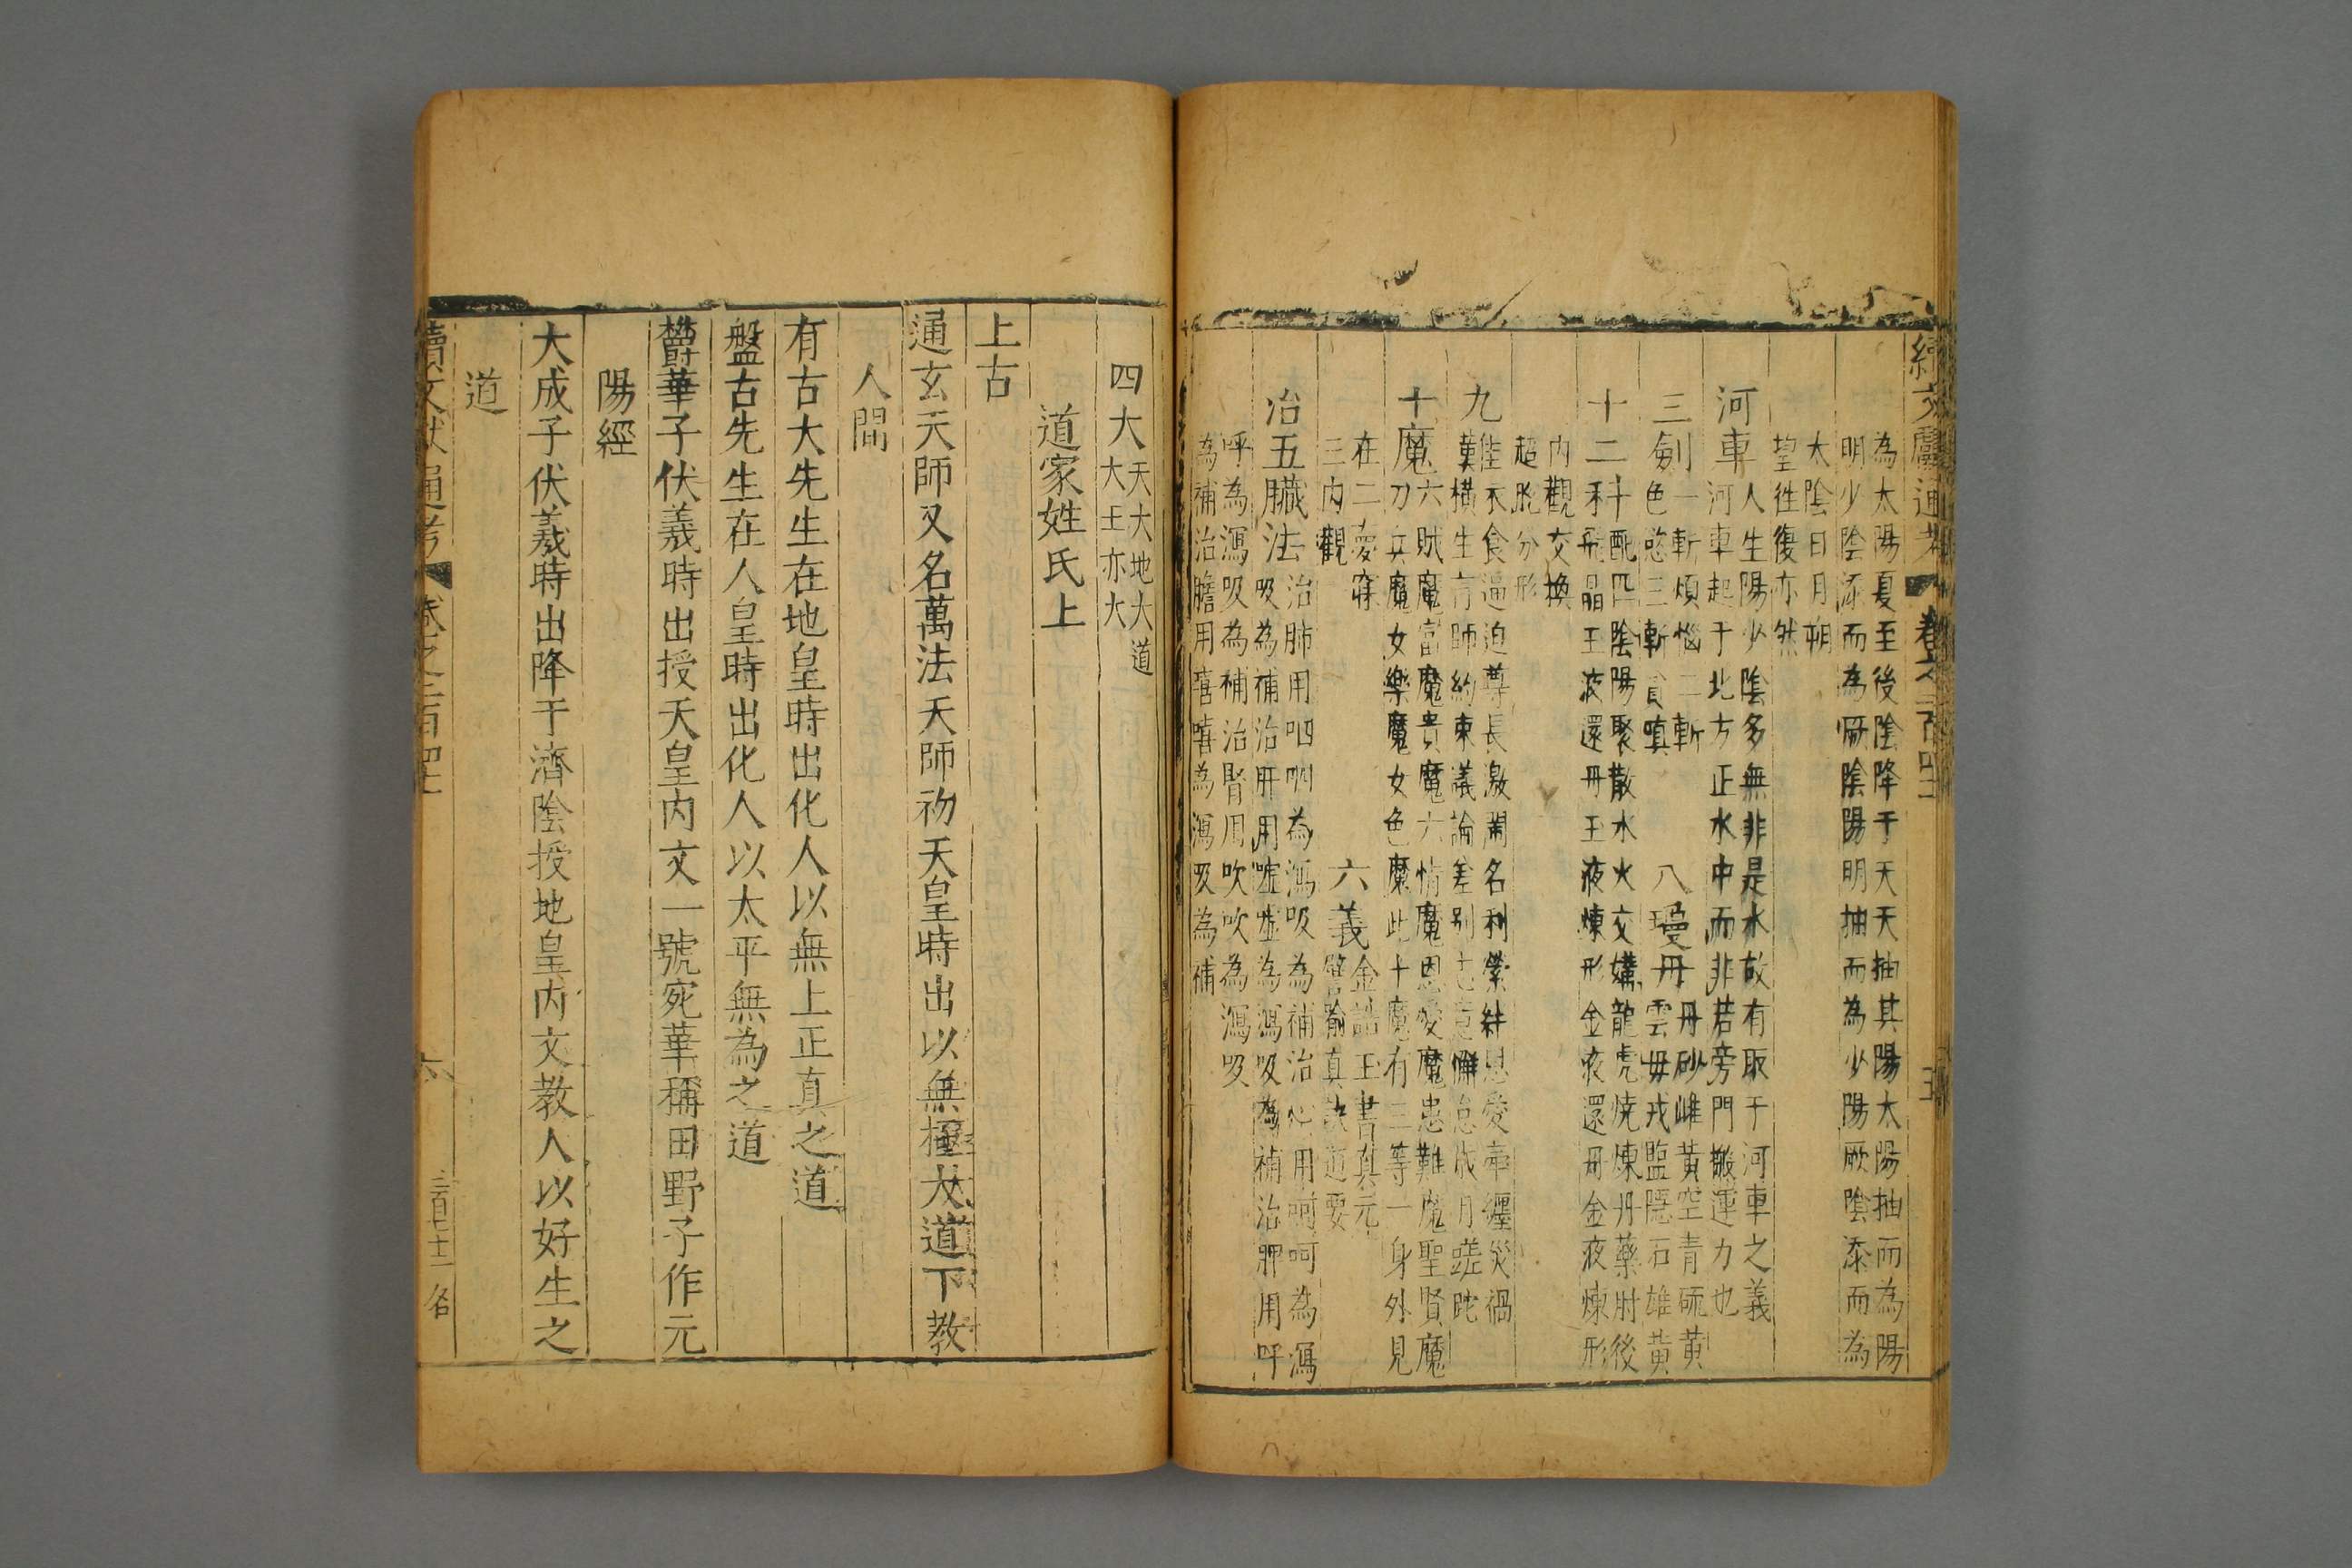 續文獻通考 卷之二百四十一 五
為太陽夏至後陰降于天天抽其陽太陽抽而為陽
明少陰添而為厥陰陽明抽而為少陽厥陰添而為
太陰日月朔
望徃復亦然
河車人生陽少陰多無非是水故有取于河車之義
河車起于北方正水中而非若旁門搬運力也
三劍一斬煩惱二斬
色慾三斬貪嗔
八瓊丹丹砂雌黃空青硫黃
雲母戎監隱石雄黃
十二科配匹陰陽聚散水火交媾龍虎燒煉丹藥肘後
飛晶玉液還丹玉液煉形金液還丹金液煉形
內觀交換
超脫分形
九難衣食逼迫尊長激闌名利縈絆恩愛牽纒災禍
橫生盲師約束議論差別志意懈怠成月蹉跎
十魔六賊魔富魔貴魔六情魔恩愛魔患難魔聖賢魔
刀兵魔女樂魔女色魔此十魔有三等一身外見
在二夢寐
三內觀
六義金誥玉書真元
譬喻真訣道要
治五臟法治肺用呬呬為瀉吸為補治心用呵呵為瀉
吸為補治肝用噓噓為瀉吸為補治脾用呼
呼為瀉吸為補治腎用吹吹為瀉吸
為補治膽用嘻嘻為瀉吸為補
四大天大地大道
大王亦大
道家姓氏上
上古
通玄天師又名萬法天師初天皇時出以無極大道下教
人間
有古大先生在地皇時出化人以無上正真之道
盤古先生在人皇時出化人以太平無為之道
欝華子伏羲時出授天皇內文一號宛華稱田野子作元
陽經
大成子伏羲時出降于濟陰授地皇內文教人以好生之
道
續文獻通考 卷之二百四十一 六 三百七十二 名